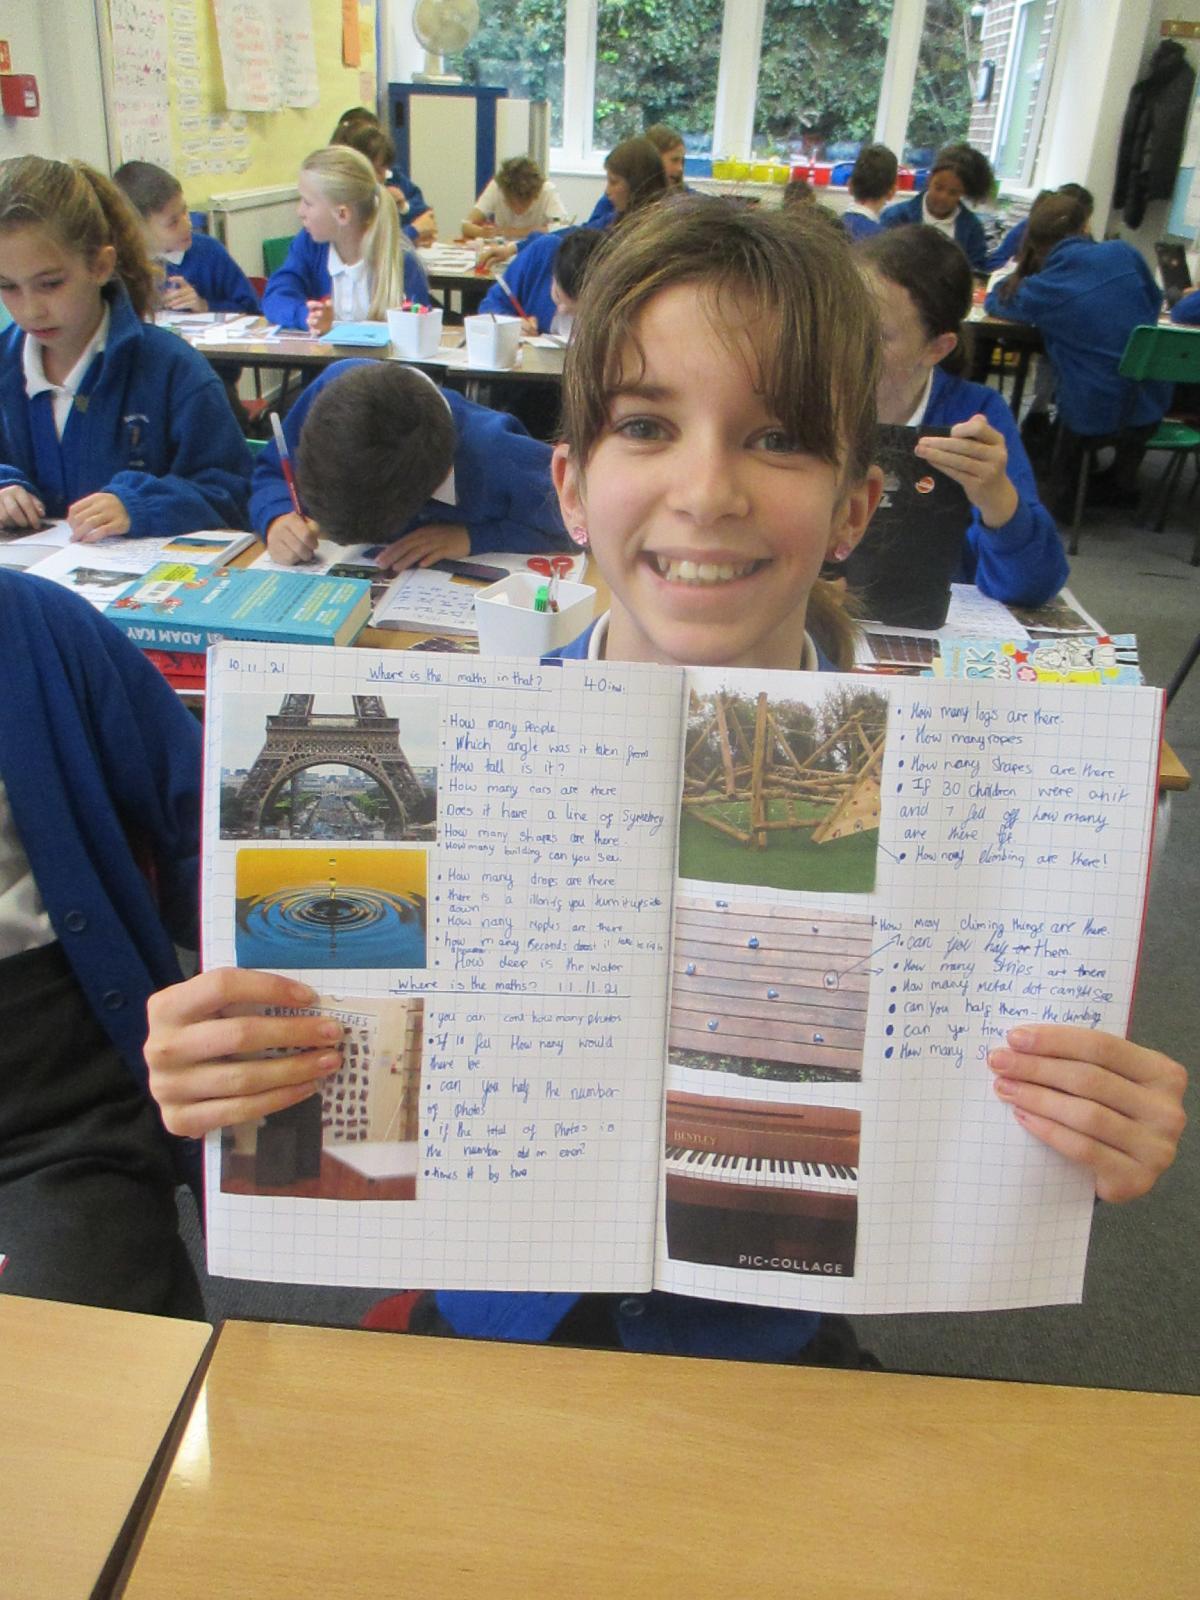 10.11.21
Where is the maths in that?
40
· How many People
· Which angle was it taken from
· How tall is it?
· How many cars are there
· Does it have a line of Symetry
· How many Shapes are there.
· How many building can you see.
· How many drops are there
· there is a if you turn it upside
down
· How many ripples are there
· how many Seconds
· How deep is the water
Where is the maths? 11.11.21
#HEALTHY SELFIES
• you can cont how many photos
• If 10 fell How many would
there be
• can you half the number
of photos
• if the total of Photos is
the number odd or even?
• times it by two
• How many logs are there.
• How many ropes
• How many Shapes are there
• If 30 children were on it
and 7 fell off how many
are there
• How many climbing are there!
How many climing things are there.
• can you half them.
• How many Strips are there
• How many metal dot can
• can you half them - the climbing
• can you times
• How many
BENTLEY
PIC•COLLAGE
ADAM KAY